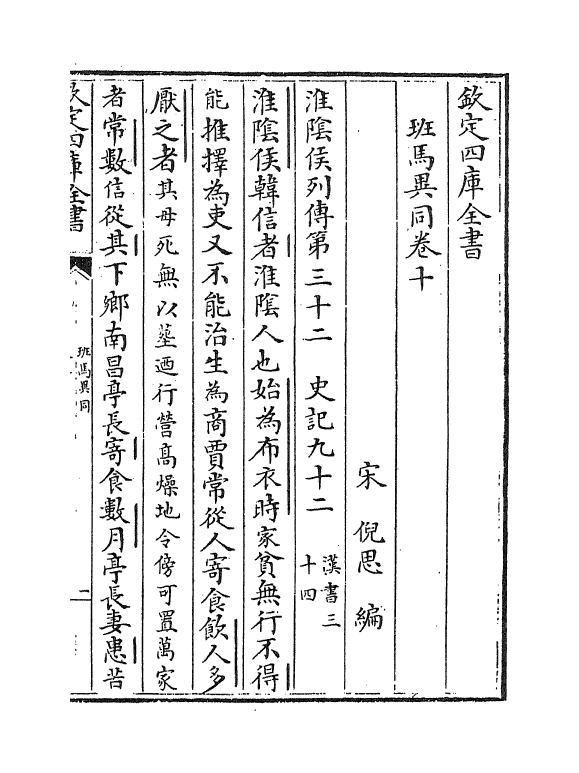 欽定四庫全書
班馬異同卷十
宋 倪思 編
淮陰侯列傳第三十二 史記九十二 漢書三十四
淮陰侯韓信者淮陰人也始為布衣時家貧無行不得
能推擇為吏又不能治生為商賈常從人寄食飲人多
厭之者其母死無以葬迺行營髙燥地令傍可置萬家
者常數信從其下鄉南昌亭長寄食數月亭長妻患苦
欽定四庫全書
班馬異同